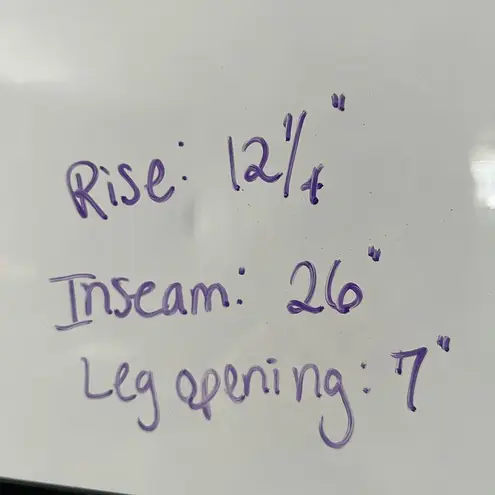 Rise: 12 1/4"
Inseam: 26"
Leg opening: 7"